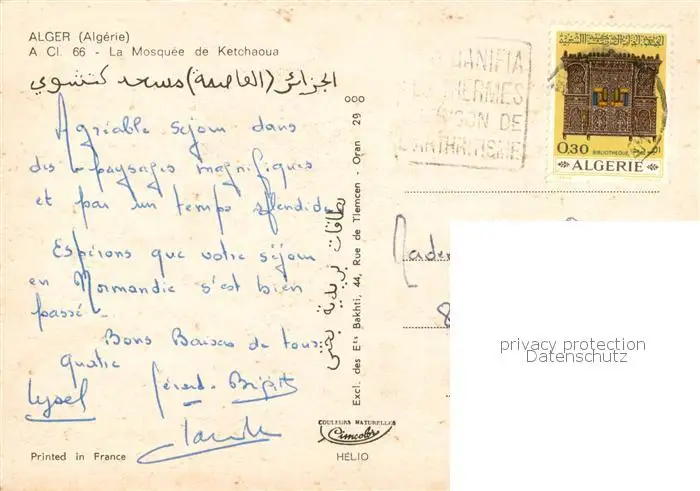 ALGER (Algérie)
A Cl. 66 - La Mosquée de Ketchaoua
الجزائر (العاصمة) مسجد كتشاوي
Agréable séjour dans
des paysages magnifiques
et par un temps splendide
Espérons que votre séjour
en Normandie s'est bien
passé.
Bons Baisers de tous
quatre
Gérard - Brigitte
Printed in France
ooo
Excl. des Ets Bakhti, 44, Rue de Tlemcen - Oran 29
بطاقات بريدية بختي
COULEURS NATURELLES
Cimcolor
HÉLIO
HANIFIA
THERMES
DE
L'ARTHRITISME
0.30
BIBLIOTHEQUE
ALGERIE
Madem
8
privacy protection
Datenschutz